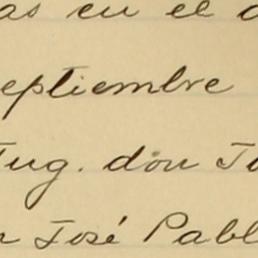 as en el d
septiembre
Ing. don Ju
n José Pabl